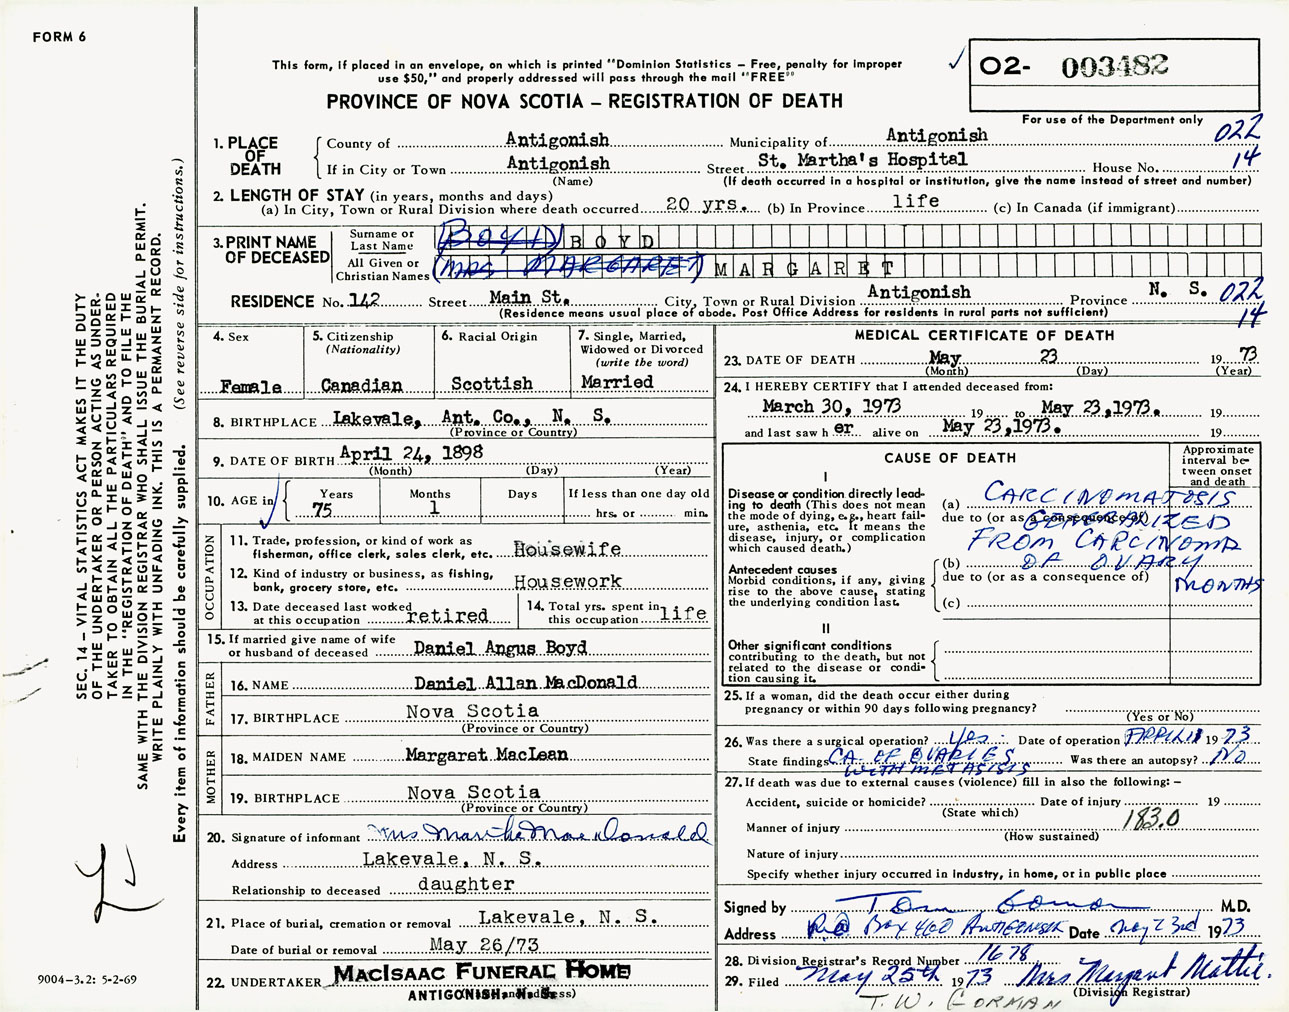 FORM 6
This form, if placed in an envelope, on which is printed "Dominion Statistics – Free, penalty for improper
use $50," and properly addressed will pass through the mail "FREE"
PROVINCE OF NOVA SCOTIA – REGISTRATION OF DEATH
O2- 003482
For use of the Department only
022
14
1. PLACE OF DEATH
County of Antigonish Municipality of Antigonish
If in City or Town Antigonish Street St. Martha's Hospital House No.
(Name) (If death occurred in a hospital or institution, give the name instead of street and number)
2. LENGTH OF STAY (in years, months and days)
(a) In City, Town or Rural Division where death occurred 20 yrs. (b) In Province life (c) In Canada (if immigrant)
3. PRINT NAME OF DECEASED
Surname or Last Name BOYD BOYD
All Given or Christian Names MRS MARGARET MARGARET
RESIDENCE No. 142 Street Main St. City, Town or Rural Division Antigonish Province N. S. 022
(Residence means usual place of abode. Post Office Address for residents in rural parts not sufficient) 14
4. Sex Female
5. Citizenship (Nationality) Canadian
6. Racial Origin Scottish
7. Single, Married, Widowed or Divorced (write the word) Married
8. BIRTHPLACE Lakevale, Ant. Co., N. S.
(Province or Country)
9. DATE OF BIRTH April 24, 1898
(Month) (Day) (Year)
10. AGE in Years 75 Months 1 Days If less than one day old hrs. or min.
OCCUPATION
11. Trade, profession, or kind of work as
fisherman, office clerk, sales clerk, etc. Housewife
12. Kind of industry or business, as fishing,
bank, grocery store, etc. Housework
13. Date deceased last worked
at this occupation retired
14. Total yrs. spent in
this occupation life
15. If married give name of wife
or husband of deceased Daniel Angus Boyd
FATHER
16. NAME Daniel Allan MacDonald
17. BIRTHPLACE Nova Scotia
(Province or Country)
MOTHER
18. MAIDEN NAME Margaret MacLean
19. BIRTHPLACE Nova Scotia
(Province or Country)
20. Signature of informant Mrs Martha MacDonald
Address Lakevale, N. S.
Relationship to deceased daughter
21. Place of burial, cremation or removal Lakevale, N. S.
Date of burial or removal May 26/73
22. UNDERTAKER MACISAAC FUNERAL HOME
ANTIGONISH, N. S.
MEDICAL CERTIFICATE OF DEATH
23. DATE OF DEATH May 23 1973
(Month) (Day) (Year)
24. I HEREBY CERTIFY that I attended deceased from:
March 30, 1973 19 to May 23, 1973. 19
and last saw h er alive on May 23, 1973. 19
CAUSE OF DEATH
Approximate interval between onset and death
I
Disease or condition directly lead-
ing to death (This does not mean
the mode of dying, e.g., heart fail-
ure, asthenia, etc. It means the
disease, injury, or complication
which caused death.)
(a) CARCINOMATOSIS
due to (or as a consequence of)
GENERALIZED
FROM CARCINOMA
Antecedent causes
Morbid conditions, if any, giving
rise to the above cause, stating
the underlying condition last.
(b) OF OVARY
due to (or as a consequence of) MONTHS
(c)
II
Other significant conditions
contributing to the death, but not
related to the disease or condi-
tion causing it.
25. If a woman, did the death occur either during
pregnancy or within 90 days following pregnancy?
(Yes or No)
26. Was there a surgical operation? Yes Date of operation 1973
State findings CA. OF OVARIES Was there an autopsy? NO
WITH METASISIS
27. If death was due to external causes (violence) fill in also the following: –
Accident, suicide or homicide? Date of injury 19
(State which)
Manner of injury 183.0
(How sustained)
Nature of injury
Specify whether injury occurred in industry, in home, or in public place
Signed by M.D.
Address Box 460 ANTIGONISH Date May 23rd 1973
28. Division Registrar's Record Number 1678
29. Filed May 25th 1973 Mrs Margaret Mattie.
(Division Registrar)
T. W. GORMAN
SEC. 14 – VITAL STATISTICS ACT MAKES IT THE DUTY
OF THE UNDERTAKER OR PERSON ACTING AS UNDER-
TAKER TO OBTAIN ALL THE PARTICULARS REQUIRED
IN THE "REGISTRATION OF DEATH" AND TO FILE THE
SAME WITH THE DIVISION REGISTRAR WHO SHALL ISSUE THE BURIAL PERMIT.
WRITE PLAINLY WITH UNFADING INK. THIS IS A PERMANENT RECORD.
Every item of information should be carefully supplied. (See reverse side for instructions.)
9004-3.2: 5-2-69